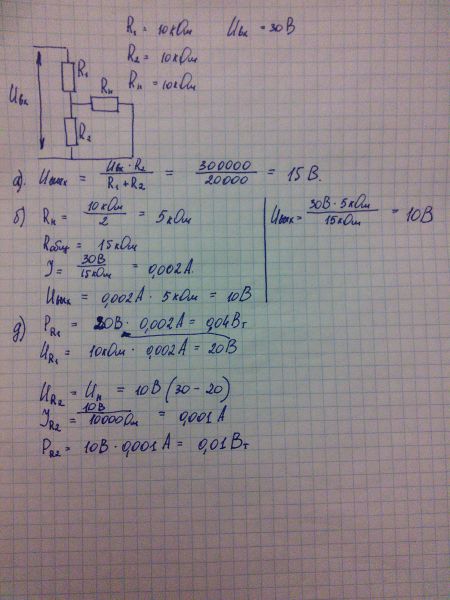 R₁ = 10кОм Uвх = 30В
R₂ = 10кОм
Rн = 10кОм
Uвх
R₁
Rн
R₂
а). Uвых = Uвх · R₂ / R₁ + R₂ = 300000 / 20000 = 15 В.
б) Rн = 10кОм / 2 = 5кОм
Rобщ = 15кОм
J = 30В / 15кОм = 0,002А.
Uвых = 0,002А · 5кОм = 10В
Uвых = 30В · 5кОм / 15кОм = 10В
д) PR1 = 20В · 0,002А = 0,04Вт
UR1 = 10кОм · 0,002А = 20В
UR2 = Uн = 10В (30 - 20)
JR2 = 10В / 10000Ом = 0,001А
PR2 = 10В · 0,001А = 0,01Вт